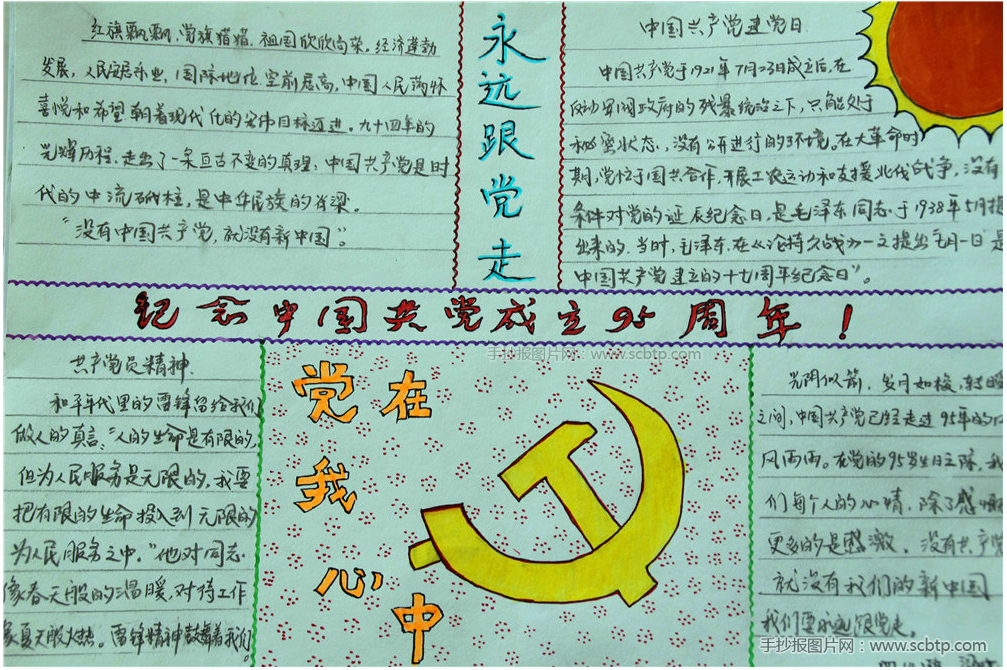 红旗飘飘,党旗猎猎.祖国欣欣向荣。经济蓬勃
发展,人民安居乐业,国际地位空前居高,中国人民满怀
喜悦和希望朝着现代化的宏伟目标迈进。九十四年的
光辉历程,走出了一条亘古不变的真理:中国共产党是时
代的中流砥柱,是中华民族的脊梁。
“没有中国共产党,就没有新中国”。
永远跟党走
中国共产党建党日.
中国共产党于1921年7月23日成立后,在
反动军阀政府的残暴统治之下,只能处于
秘密状态,没有公开进行的环境。在大革命时
期,党忙于国共合作,开展工农运动和支援北伐战争,没有
条件对党的诞辰纪念日,是毛泽东同志于1938年5月提
出来的.当时,毛泽东在《论持久战》一文提出“七月一日是
中国共产党建立的十七周年纪念日”。
纪念中国共党成立95周年!
手抄报图片网:www.scbtp.com
共产党员精神.
和平年代里的雷锋留给我们
做人的真言、“人的生命是有限的,
但为人民服务是无限的,我要
把有限的生命投入到无限的
为人民服务之中,”他对同志
像春天般的温暖,对待工作
象夏天般火热。雷锋精神鼓舞着我们。
党在我心中
光阴似箭,岁月如梭,
之间,中国共产党已经走过95年的
风雨雨。在党的95岁生日之际,我
们每个人的心情,除了感慨
更多的是感激、没有共产党
就没有我们的新中国
我们要永远跟党走。
手抄报图片网:www.scbtp.com